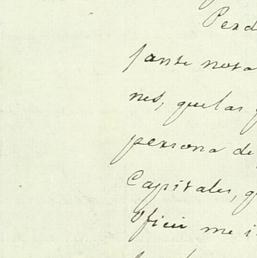 Perd
jante nota
nes, que las
persona de
Capitales, q
me i